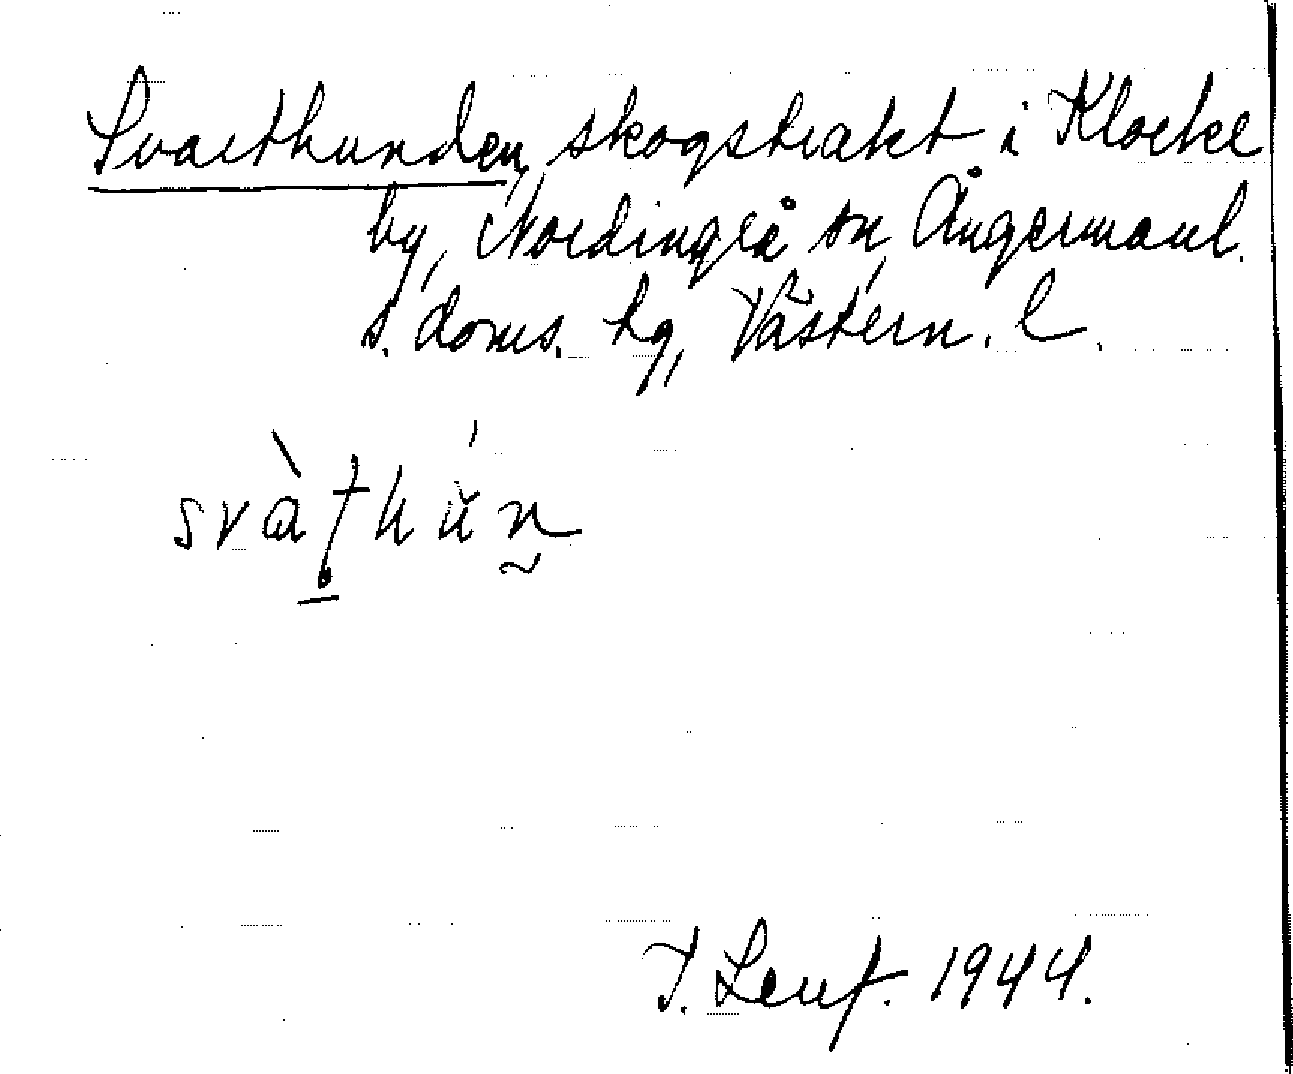 Svarthunden, skogstrakt i Klocke
by, Nordingrå sn, Ångermanl.
s. doms. tg, Västern. l.
svàt hún
J. Lenf. 1944.